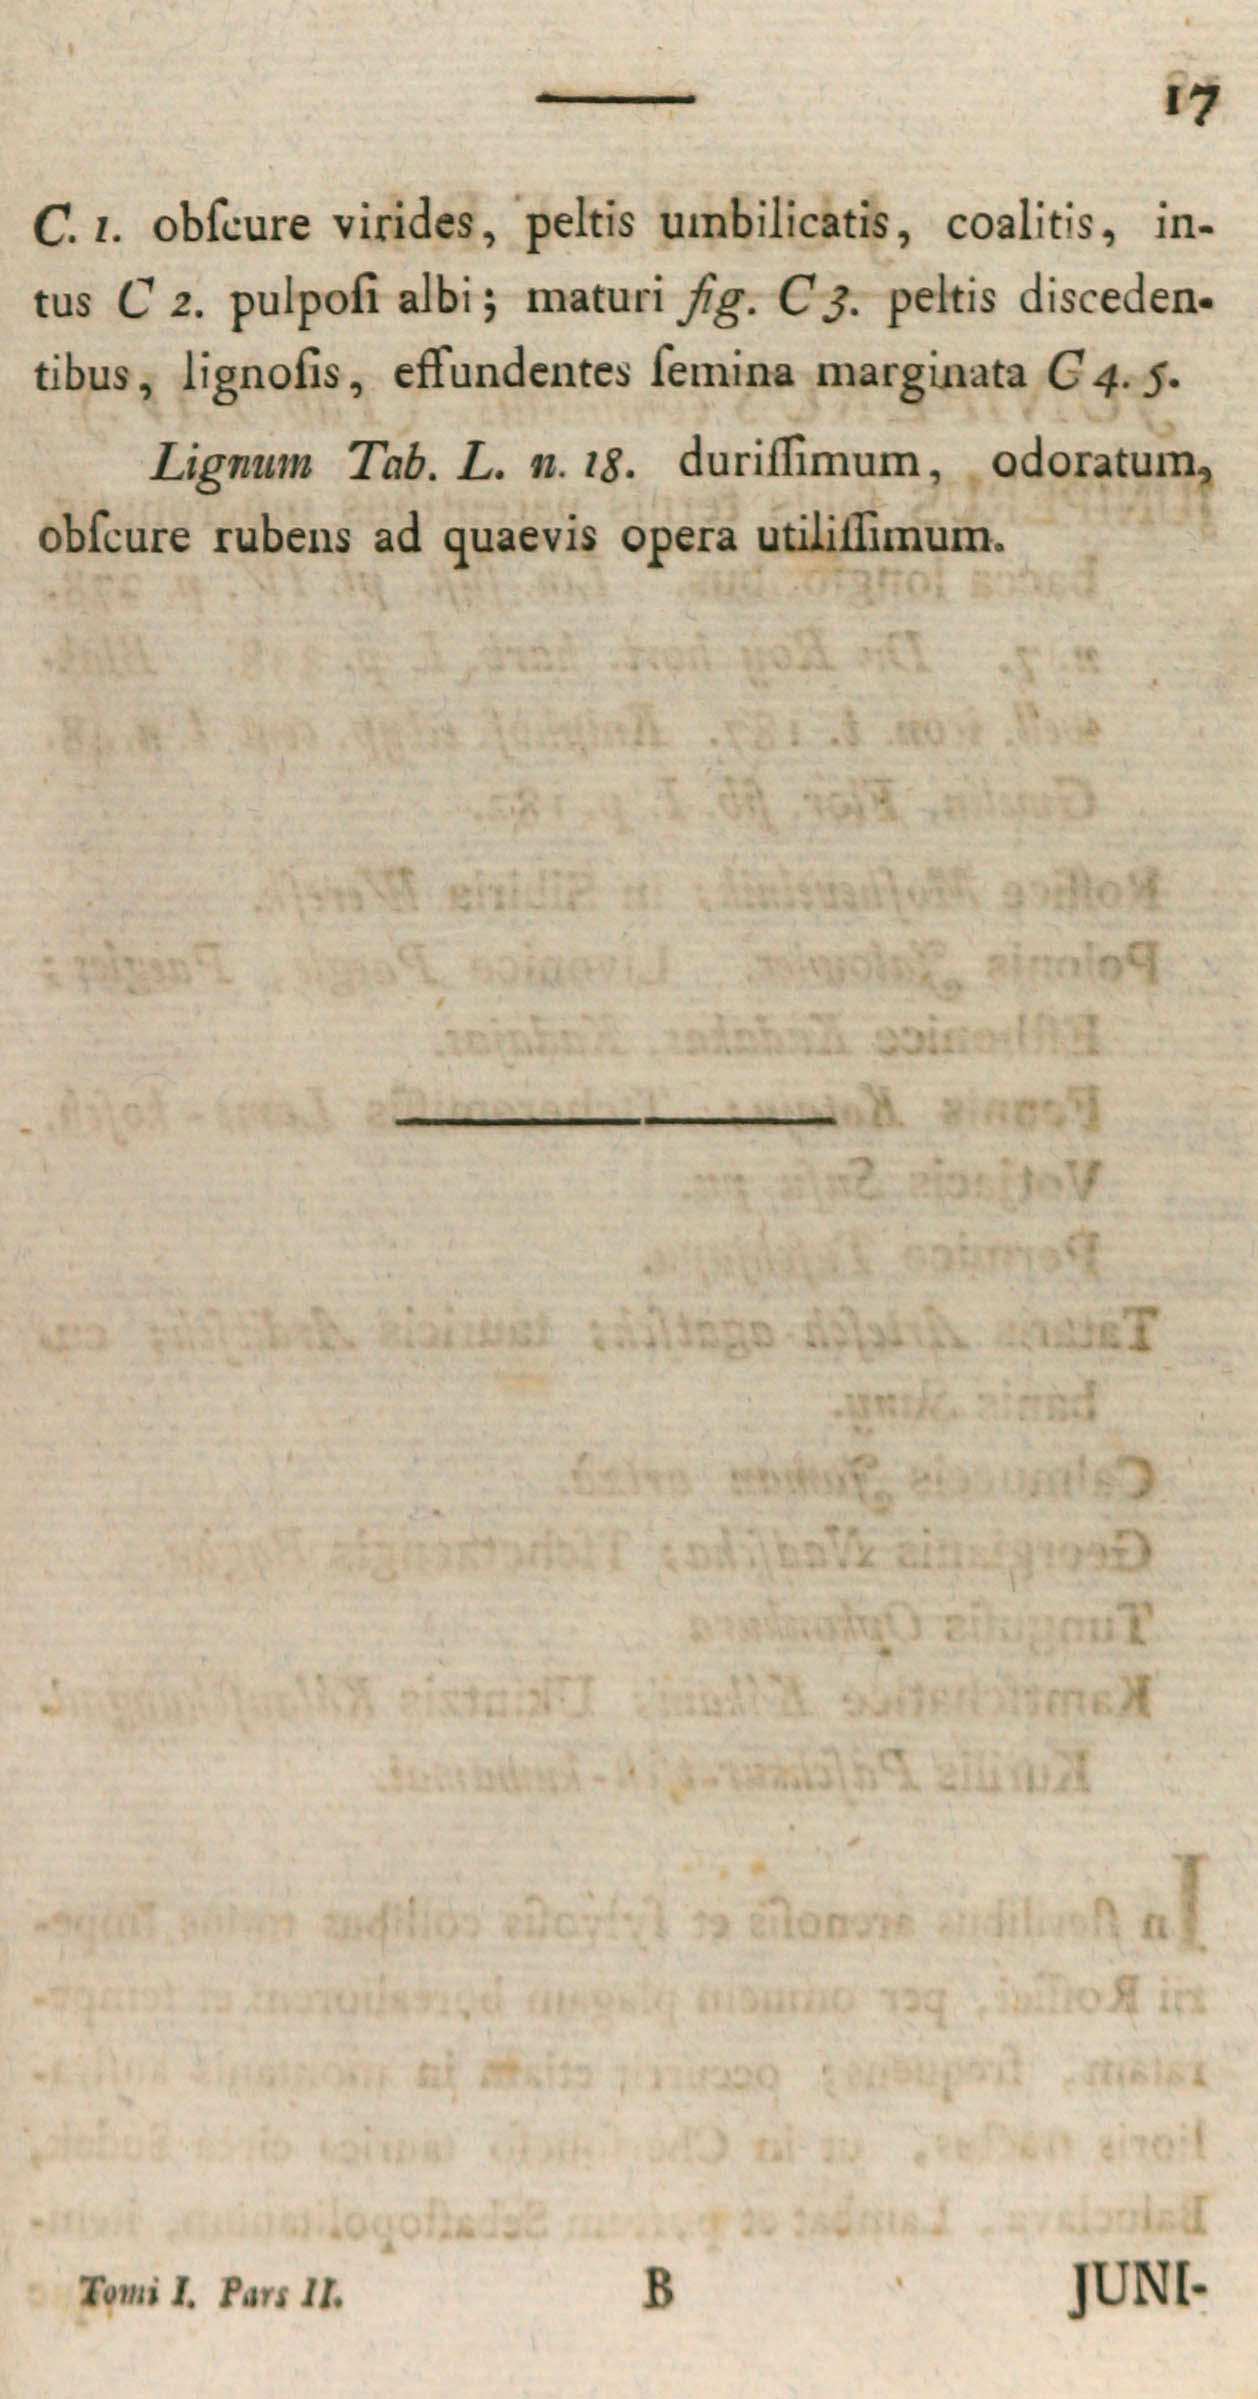 17
C. 1. obſcure virides, peltis umbilicatis, coalitis, in-
tus C 2. pulpoſi albi; maturi fig. C 3. peltis disceden-
tibus, lignoſis, effundentes ſemina marginata C 4. 5.
Lignum Tab. L. n. 18. duriſſimum, odoratum,
obſcure rubens ad quaevis opera utiliſſimum.
Tomi I. Pars II. B JUNI-